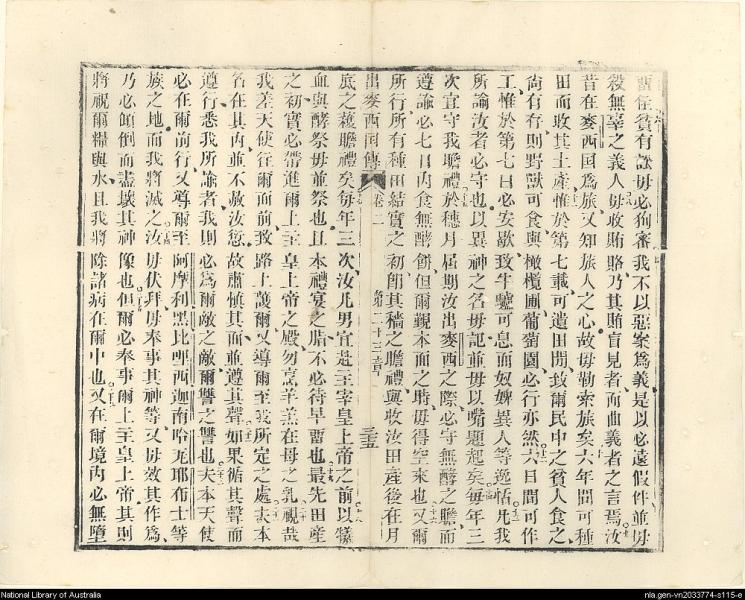 留住貧有訟毋必狥審我不以惡案為義是以必遠假件並毋
殺無辜之義人毋收賄賂乃其賄盲見者而曲義者之言焉汝
昔在麥西國為旅又知旅人之心故毋勒索旅矣六年間可種
田而收其土產惟於第七載可遺田閒致爾民中之貧人食之
尚有存則野獸可食與橄欖圃葡萄園必行亦然六日間可作
工惟於第七日必安歇致牛驢可息而奴婢異人等迤悟凡我
所諭汝者必守也以異神之名毋記並毋以嘴題起矣每年三
次宜守我瞻禮於穗月屆期汝出麥西之際必守無酵之瞻而
遵諭必七日內食無酵餅但爾覲本面之時毋得空來也又爾
所行所有種田結實之初餡其穡之瞻禮與收汝田產後在月
出麥西國傳 卷二 第二十三章 三五
底之穫瞻禮矣每年三次汝凡男宜赴至宰皇上帝之前以犧
血與酵祭毋並祭也且本禮宴之脂不必待早留也最先田產
之初實必帶進爾上至皇上帝之殿勿烹羊羔在母之乳視哉
我差天使往爾而前致路上護爾又導爾至我所定之處夫本
名在其內並不赦汝愆故肅慎其而並遵其聲如果循其聲而
遵行悉我所諭者我則必為爾敵之敵爾讐之讐也夫本天使
必在爾前行又導爾至阿摩利黑比哩西迦南哈无耶布士等
族之地而我將滅之汝毋伏拜毋奉事其神等又毋效其作為
乃必傾倒而盡壞其神像也但爾必奉事爾上至皇上帝其則
將祝爾糧與水且我將除諸病在爾中也又在爾境內必無墮
National Library of Australia
nla.gen-vn2033774-s115-e